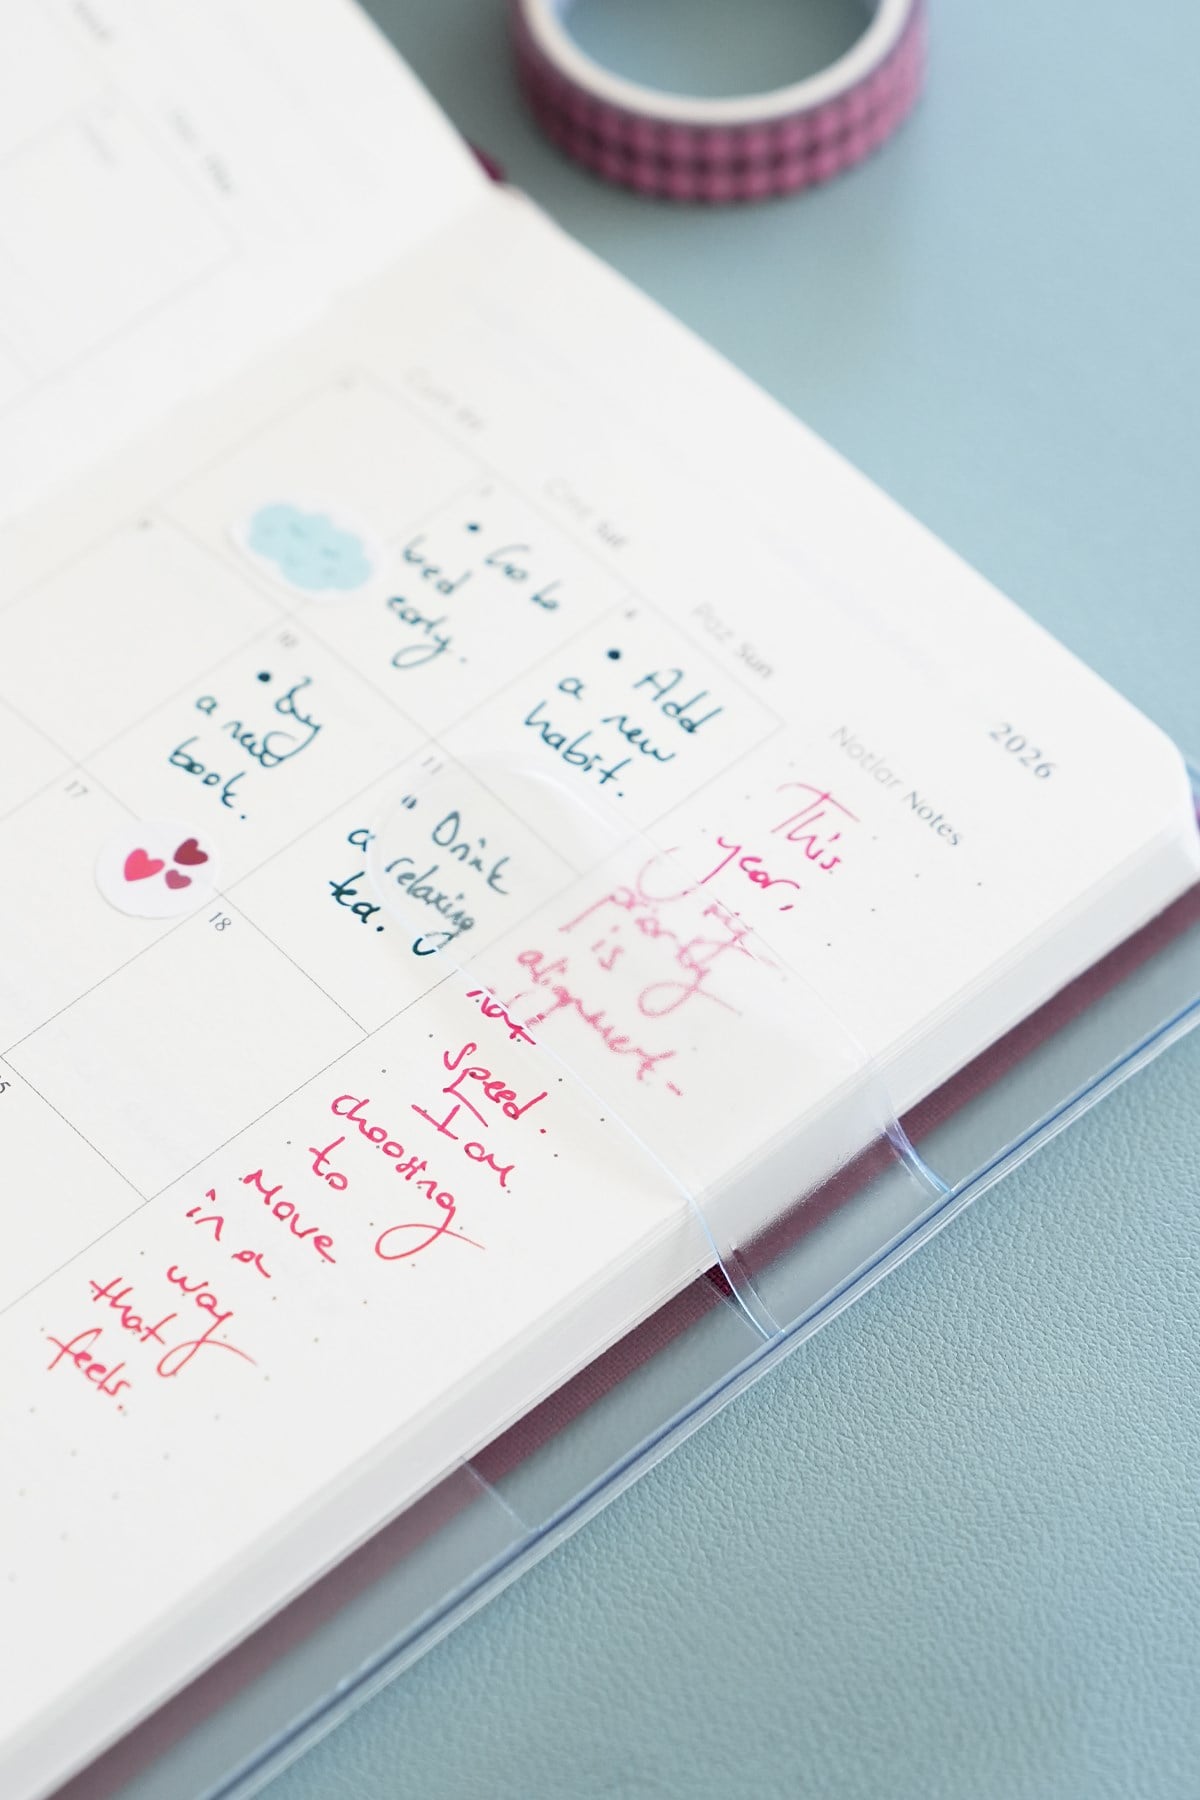 2026
Cum Fri
Cmt Sat
Paz Sun
Notlar Notes
3
• Go to
bed
early.
4
• Add
a new
habit.
9
10
• Buy
a new
book.
11
" Drink
a relaxing
tea.
17
18
This
year,
my
priority
is
alignment-
not
speed.
I am
choosing
to
move
in a
way
that
feels.